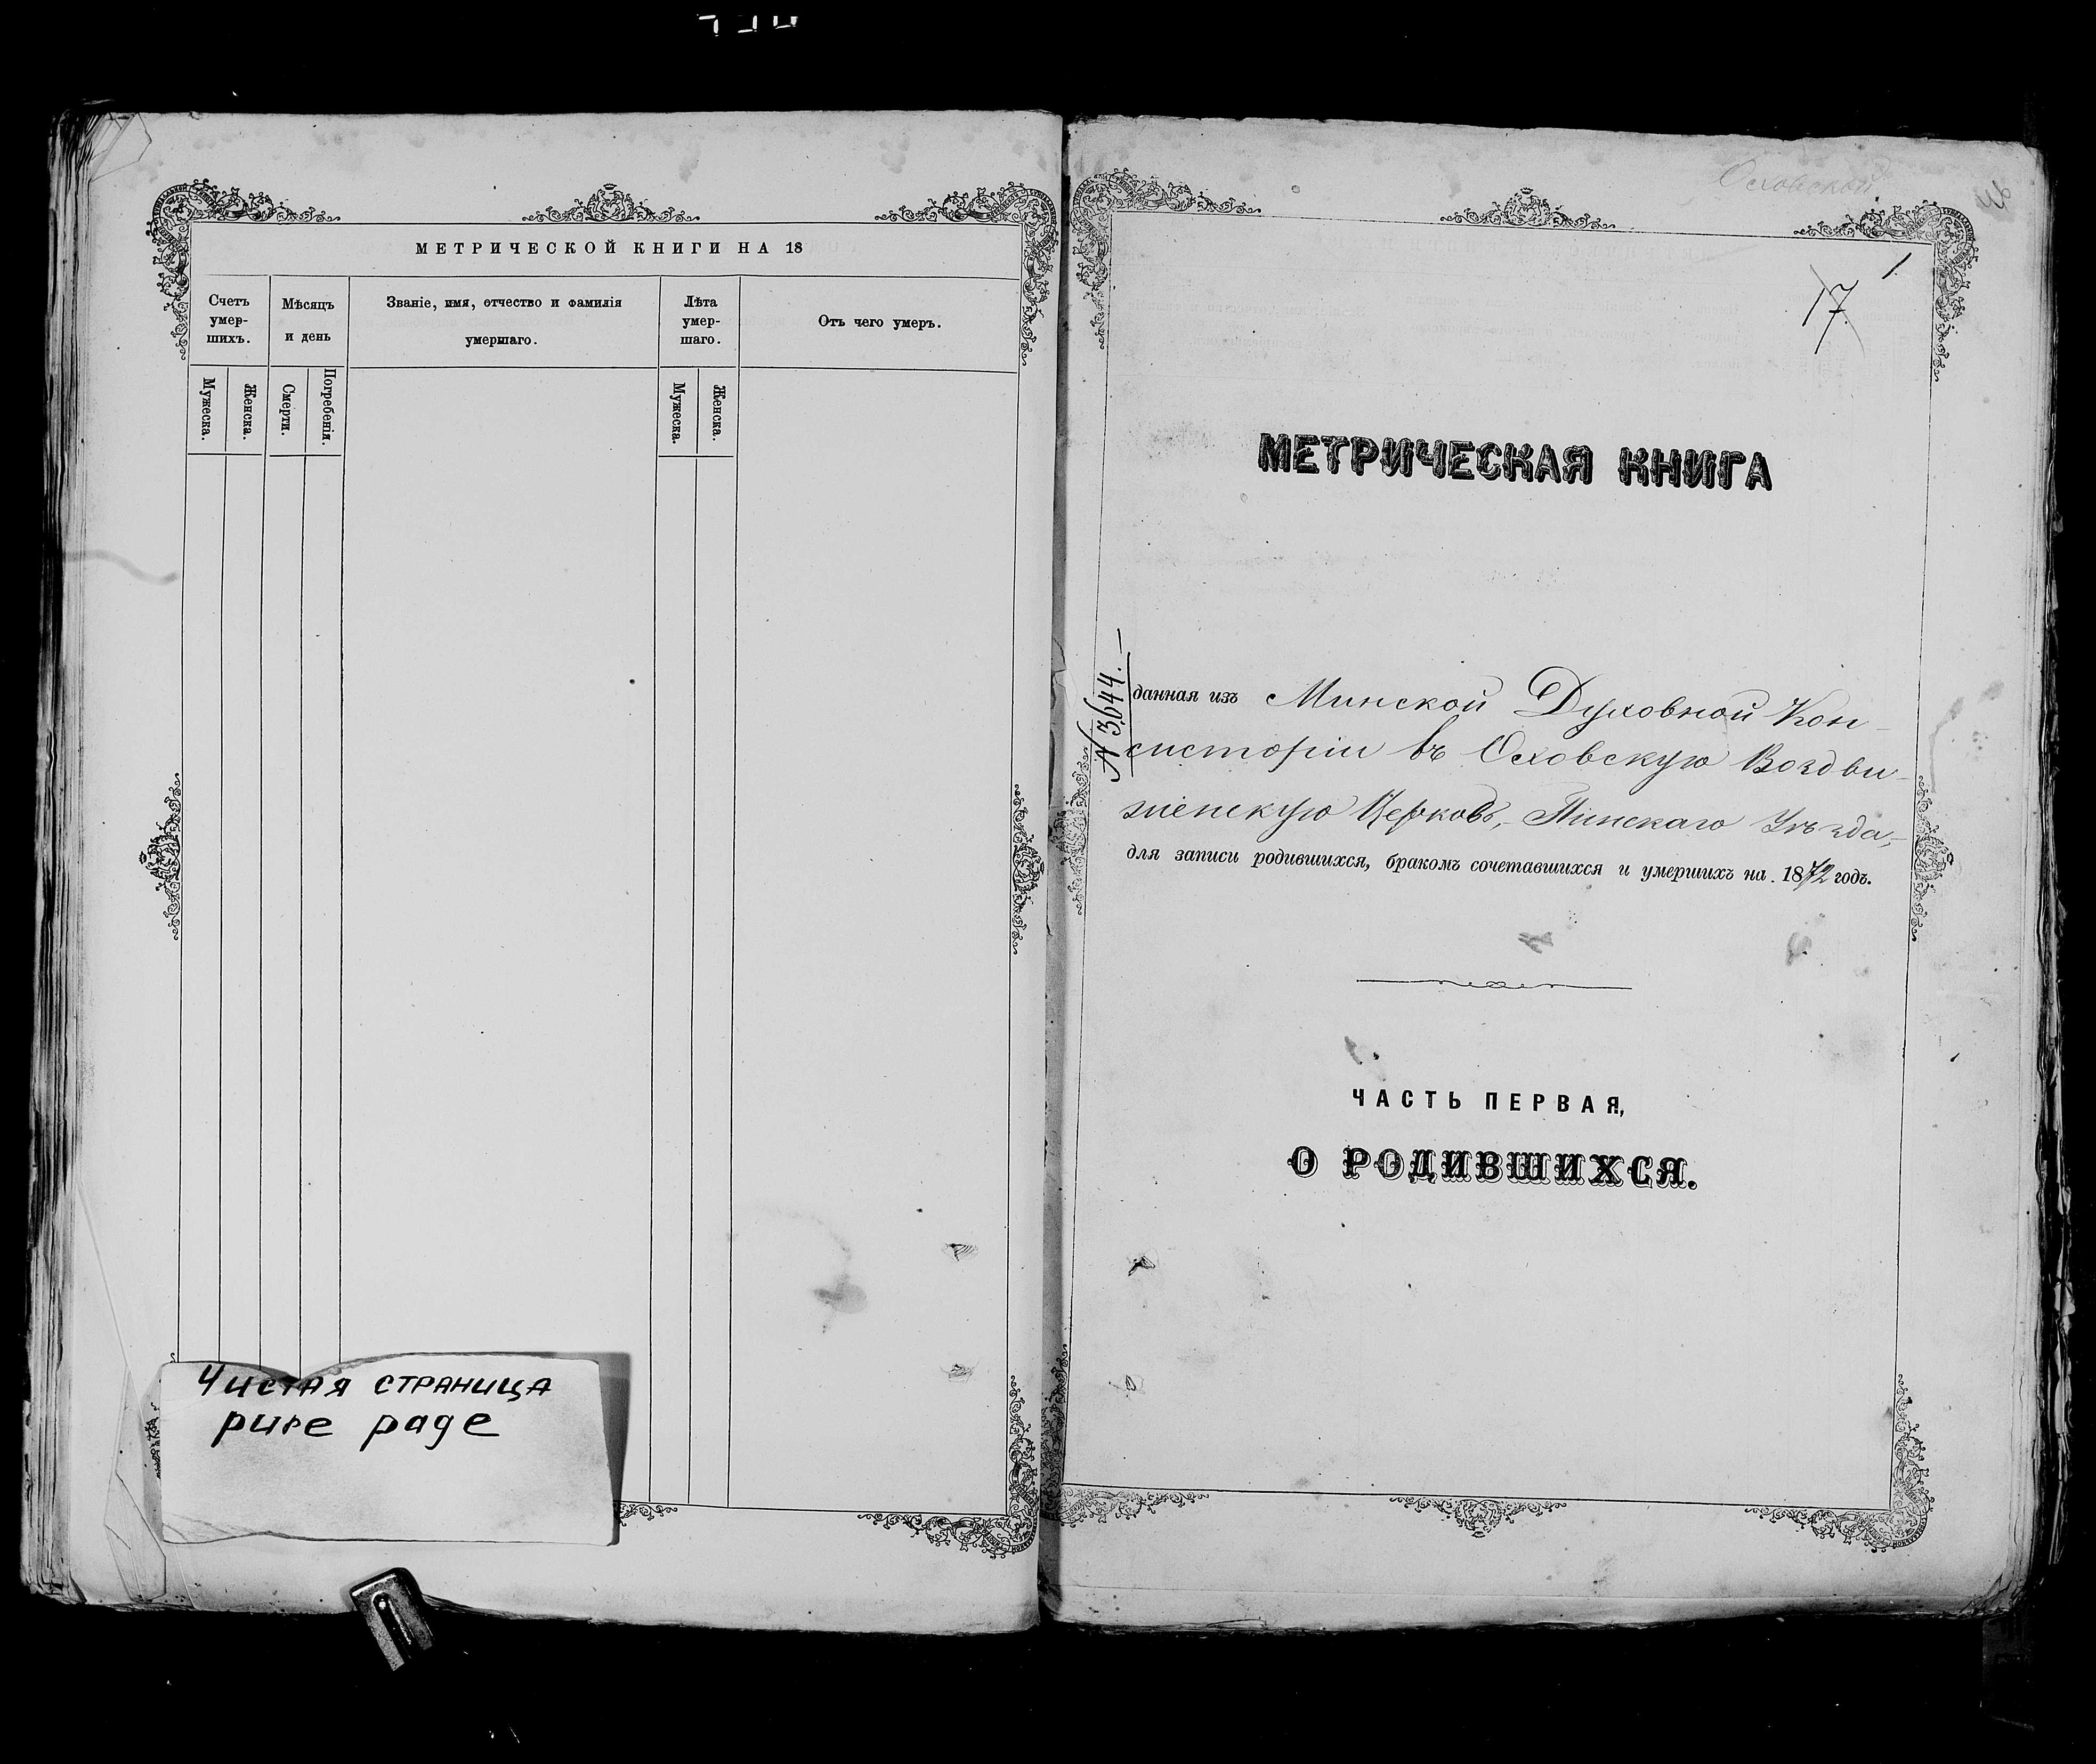 МЕТРИЧЕСКОЙ КНИГИ НА 18
Счетъ умер-шихъ.
Мѣсяцъ и день
Званіе, имя, отчество и фамилія умершаго.
Лѣта умер-шаго.
Отъ чего умеръ.
Мужеска.
Женска.
Смерти.
Погребенія.
Мужеска.
Женска.
Чистая страница
pure page
Осховской
1
17
МЕТРИЧЕСКАЯ КНИГА
№ 3644.
данная изъ Минской Духовной Кон-
систоріи въ Осховскую Воздви-
женскую Церковь, Пинскаго Уѣзда,
для записи родившихся, бракомъ сочетавшихся и умершихъ на 1872 годъ.
ЧАСТЬ ПЕРВАЯ,
О РОДИВШИХСЯ.